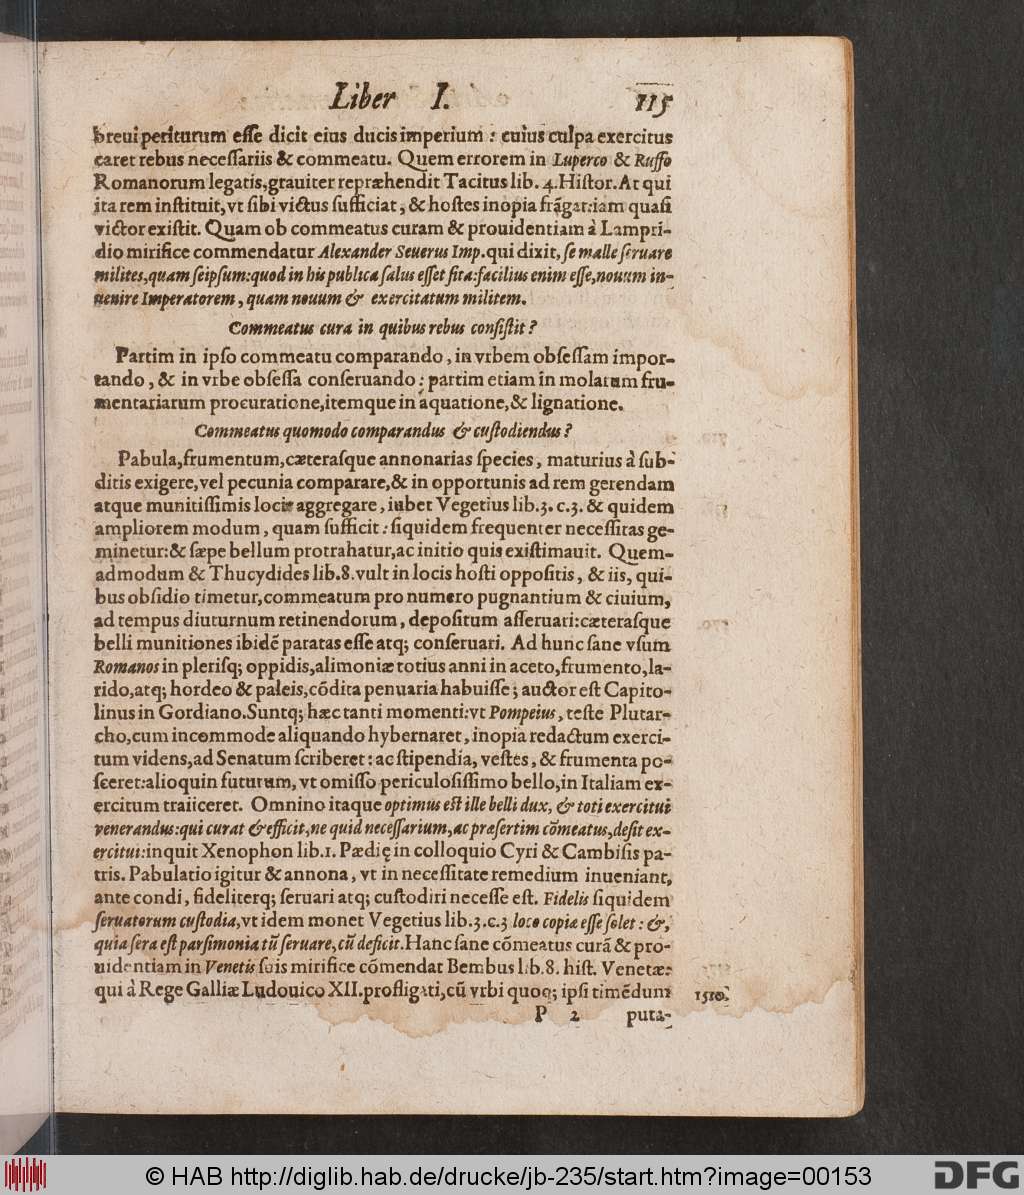 Liber I. 115
breui periturum eſſe dicit eius ducis imperium : cuius culpa exercitus
caret rebus neceſſariis & commeatu. Quem errorem in Luperco & Ruffo
Romanorum legatis, grauiter repræhendit Tacitus lib. 4. Hiſtor. At qui
ita rem inſtituit, vt ſibi victus ſufficiat, & hoſtes inopia frãgat: iam quaſi
victor exiſtit. Quam ob commeatus curam & prouidentiam à Lampri-
dio mirifice commendatur Alexander Seuerus Imp. qui dixit, ſe malle ſeruare
milites, quam ſeipſum: quod in his publica ſalus eſſet ſita: facilius enim eſſe, nouum in-
uenire Imperatorem, quam nouum & exercitatum militem.
Commeatus cura in quibus rebus conſiſtit?
Partim in ipſo commeatu comparando, in vrbem obſeſſam impor-
tando, & in vrbe obſeſſa conſeruando: partim etiam in molarum fru-
mentariarum procuratione, itemque in aquatione, & lignatione.
Commeatus quomodo comparandus & cuſtodiendus?
Pabula, frumentum, cæteraſque annonarias ſpecies, maturius à ſub-
ditis exigere, vel pecunia comparare, & in opportunis ad rem gerendam
atque munitiſſimis locis aggregare, iubet Vegetius lib. 3. c. 3. & quidem
ampliorem modum, quam ſufficit: ſiquidem frequenter neceſſitas ge-
minetur: & ſæpe bellum protrahatur, ac initio quis exiſtimauit. Quem-
admodum & Thucydides lib. 8. vult in locis hoſti oppoſitis, & iis, qui-
bus obſidio timetur, commeatum pro numero pugnantium & ciuium,
ad tempus diuturnum retinendorum, depoſitum aſſeruari: cæteraſque
belli munitiones ibidẽ paratas eſſe atq; conſeruari. Ad hunc ſane vſum
Romanos in pleriſq; oppidis, alimoniæ totius anni in aceto, frumento, la-
rido, atq; hordeo & paleis, cõdita penuaria habuiſſe; auctor eſt Capito-
linus in Gordiano. Suntq; hæc tanti momenti: vt Pompeius, teſte Plutar-
cho, cum incommode aliquando hybernaret, inopia redactum exerci-
tum videns, ad Senatum ſcriberet: ac ſtipendia, veſtes, & frumenta po-
ſceret: alioquin futurum, vt omiſſo periculoſiſſimo bello, in Italiam ex-
ercitum traiiceret. Omnino itaque optimus eſt ille belli dux, & toti exercitui
venerandus: qui curat & efficit, ne quid neceſſarium, ac præſertim cõmeatus, deſit ex-
ercitui: inquit Xenophon lib. 1. Pædię in colloquio Cyri & Cambiſis pa-
tris. Pabulatio igitur & annona, vt in neceſſitate remedium inueniant,
ante condi, fideliterq; ſeruari atq; cuſtodiri neceſſe eſt. Fidelis ſiquidem
ſeruatorum cuſtodia, vt idem monet Vegetius lib. 3. c. 3 loco copiæ eſſe ſolet: &,
quia ſera eſt parſimonia tũ ſeruare, cũ deficit. Hanc ſane cõmeatus curã & pro-
uidentiam in Venetis ſuis mirifice cõmendat Bembus lib. 8. hiſt. Venetæ:
qui à Rege Galliæ Ludouico XII. profligati, cũ vrbi quoq; ipſi timẽdum 1510.
P 2 puta-
© HAB http://diglib.hab.de/drucke/jb-235/start.htm?image=00153 DFG